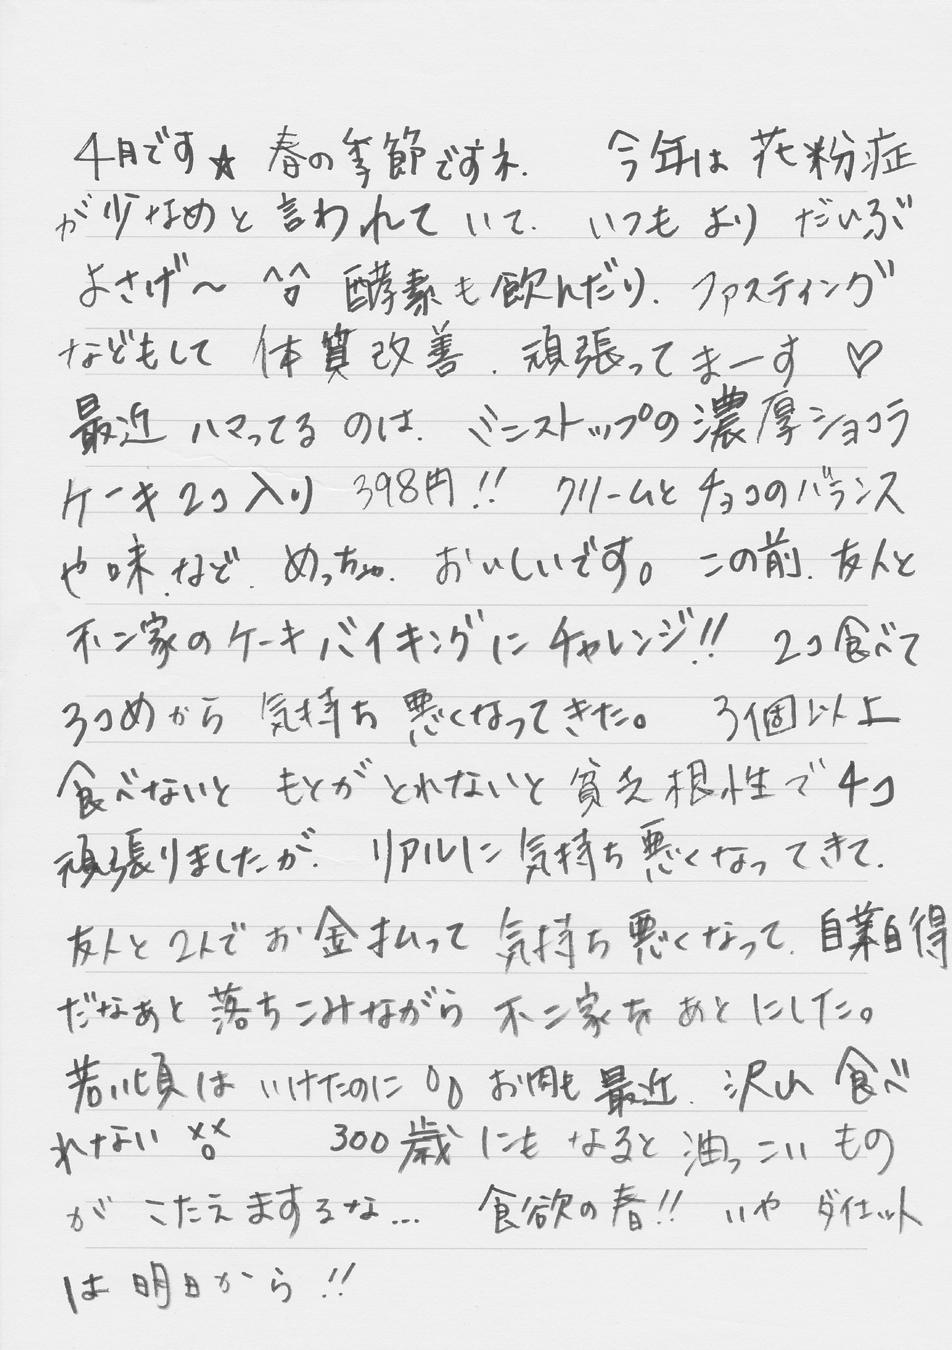 4月です☆ 春の季節ですネ. 今年は花粉症
が少なめと言われていて. いつもよりだいぶ
よさげ〜 ^o^ 酵素も飲んだり、ファスティング
などもして 体質改善、頑張ってまーす ♡
最近ハマってるのは、ミニストップの濃厚ショコラ
ケーキ2コ入り 398円!! クリームとチョコのバランス
や味など、めっちゃ、おいしいです。この前、友人と
不二家のケーキバイキングにチャレンジ!! 2コ食べて
3コめから 気持ち悪くなってきた。 3個以上
食べないと もとがとれないと貧乏根性で4コ
頑張りましたが、リアルに気持ち悪くなってきて、
友人と2人でお金払って気持ち悪くなって、自業自得
だなぁと落ちこみながら不二家をあとにした。
若い頃はいけたのに 00 お肉も最近、沢山食べ
れない xox 300歳にもなると油っこいもの
がこたえまするな... 食欲の春!! いやダイエット
は明日から!!